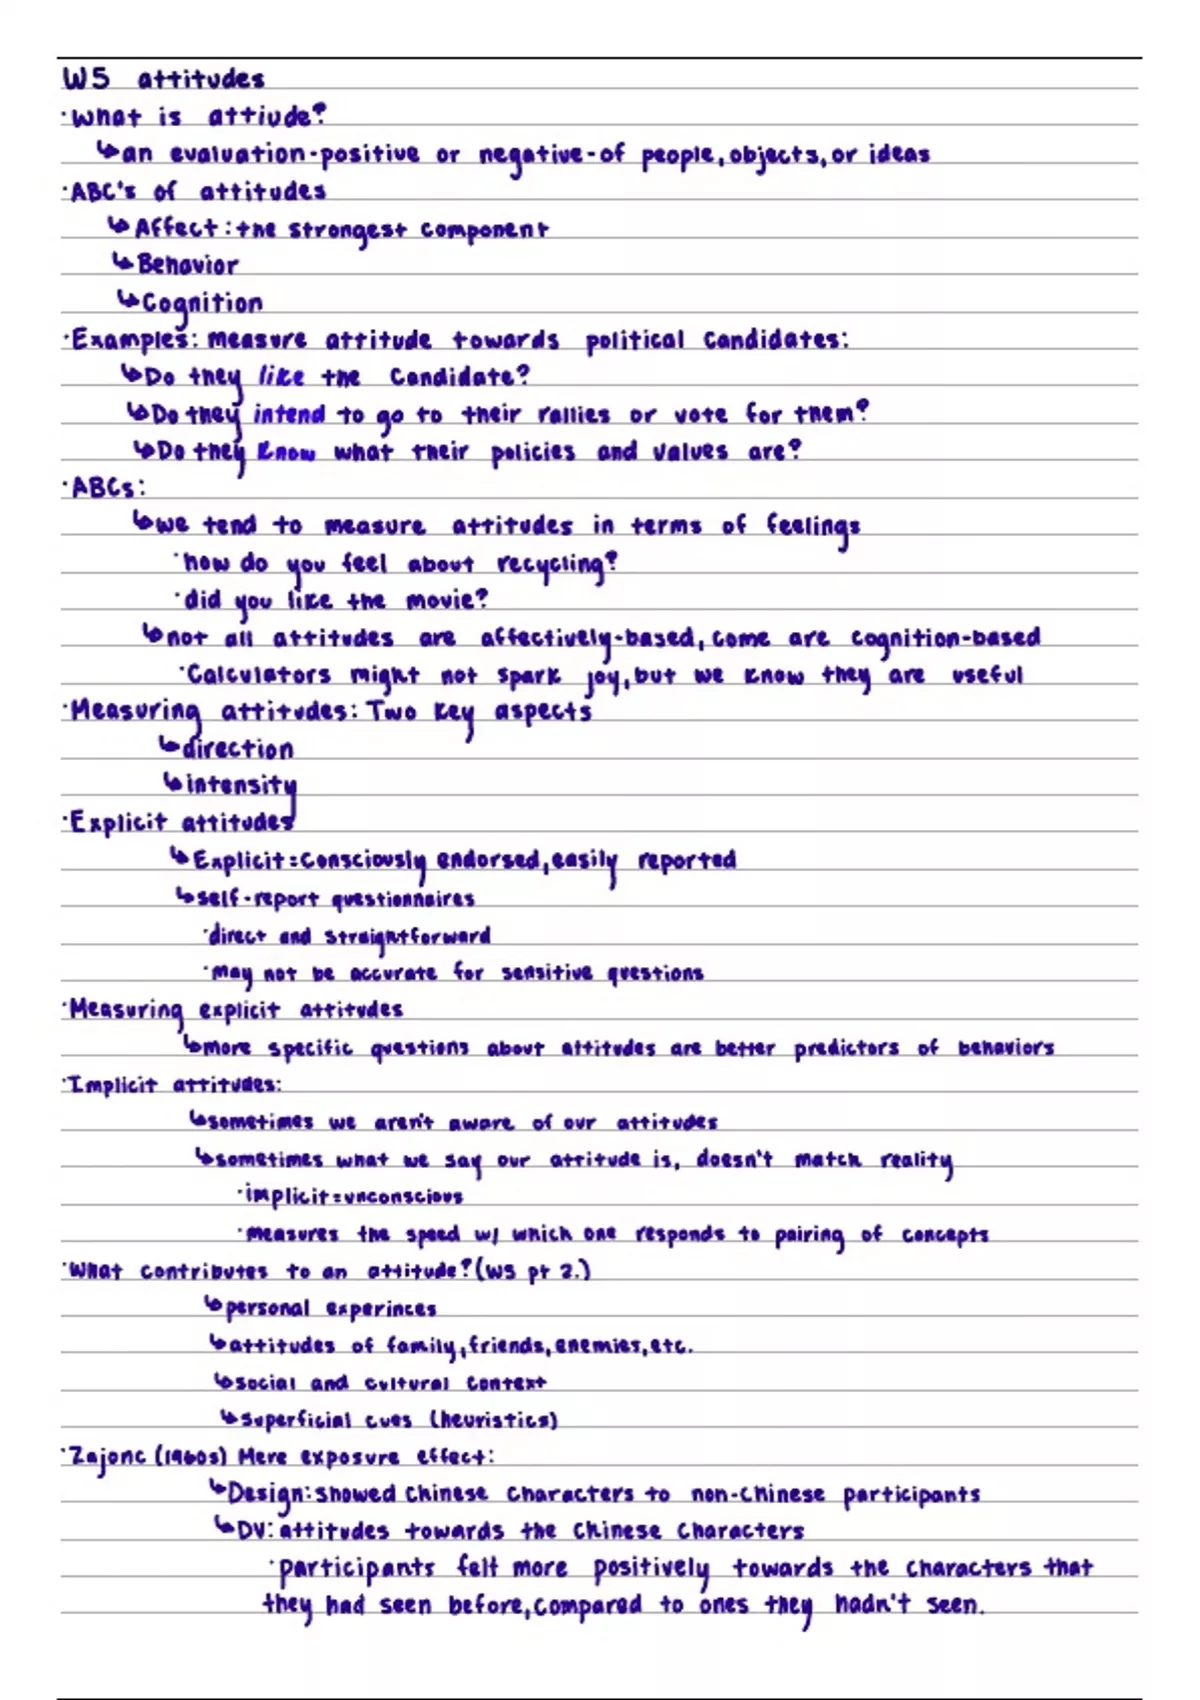 W5 attitudes
·What is attiude?
↳an evaluation-positive or negative-of people, objects, or ideas
·ABC's of attitudes
↳Affect: the strongest component
↳Behavior
↳Cognition
·Examples: measure attitude towards political candidates:
↳Do they like the candidate?
↳Do they intend to go to their rallies or vote for them?
↳Do they know what their policies and values are?
·ABCs:
↳we tend to measure attitudes in terms of feelings
·how do you feel about recycling?
·did you like the movie?
↳not all attitudes are affectively-based, come are cognition-based
·Calculators might not spark joy, but we know they are useful
·Measuring attitudes: Two key aspects
↳direction
↳intensity
·Explicit attitudes
↳Explicit=consciously endorsed, easily reported
↳self-report questionnaires
·direct and straightforward
·may not be accurate for sensitive questions
·Measuring explicit attitudes
↳more specific questions about attitudes are better predictors of behaviors
·Implicit attitudes:
↳sometimes we aren't aware of our attitudes
↳sometimes what we say our attitude is, doesn't match reality
·implicit=unconscious
·measures the speed w/ which one responds to pairing of concepts
·What contributes to an attitude? (W5 pt 2.)
↳personal experinces
↳attitudes of family, friends, enemies, etc.
↳social and cultural context
↳superficial cues (heuristics)
·Zajonc (1960s) Mere exposure effect:
↳Design: showed Chinese characters to non-Chinese participants
↳DV: attitudes towards the Chinese characters
·participants felt more positively towards the characters that
they had seen before, compared to ones they hadn't seen.